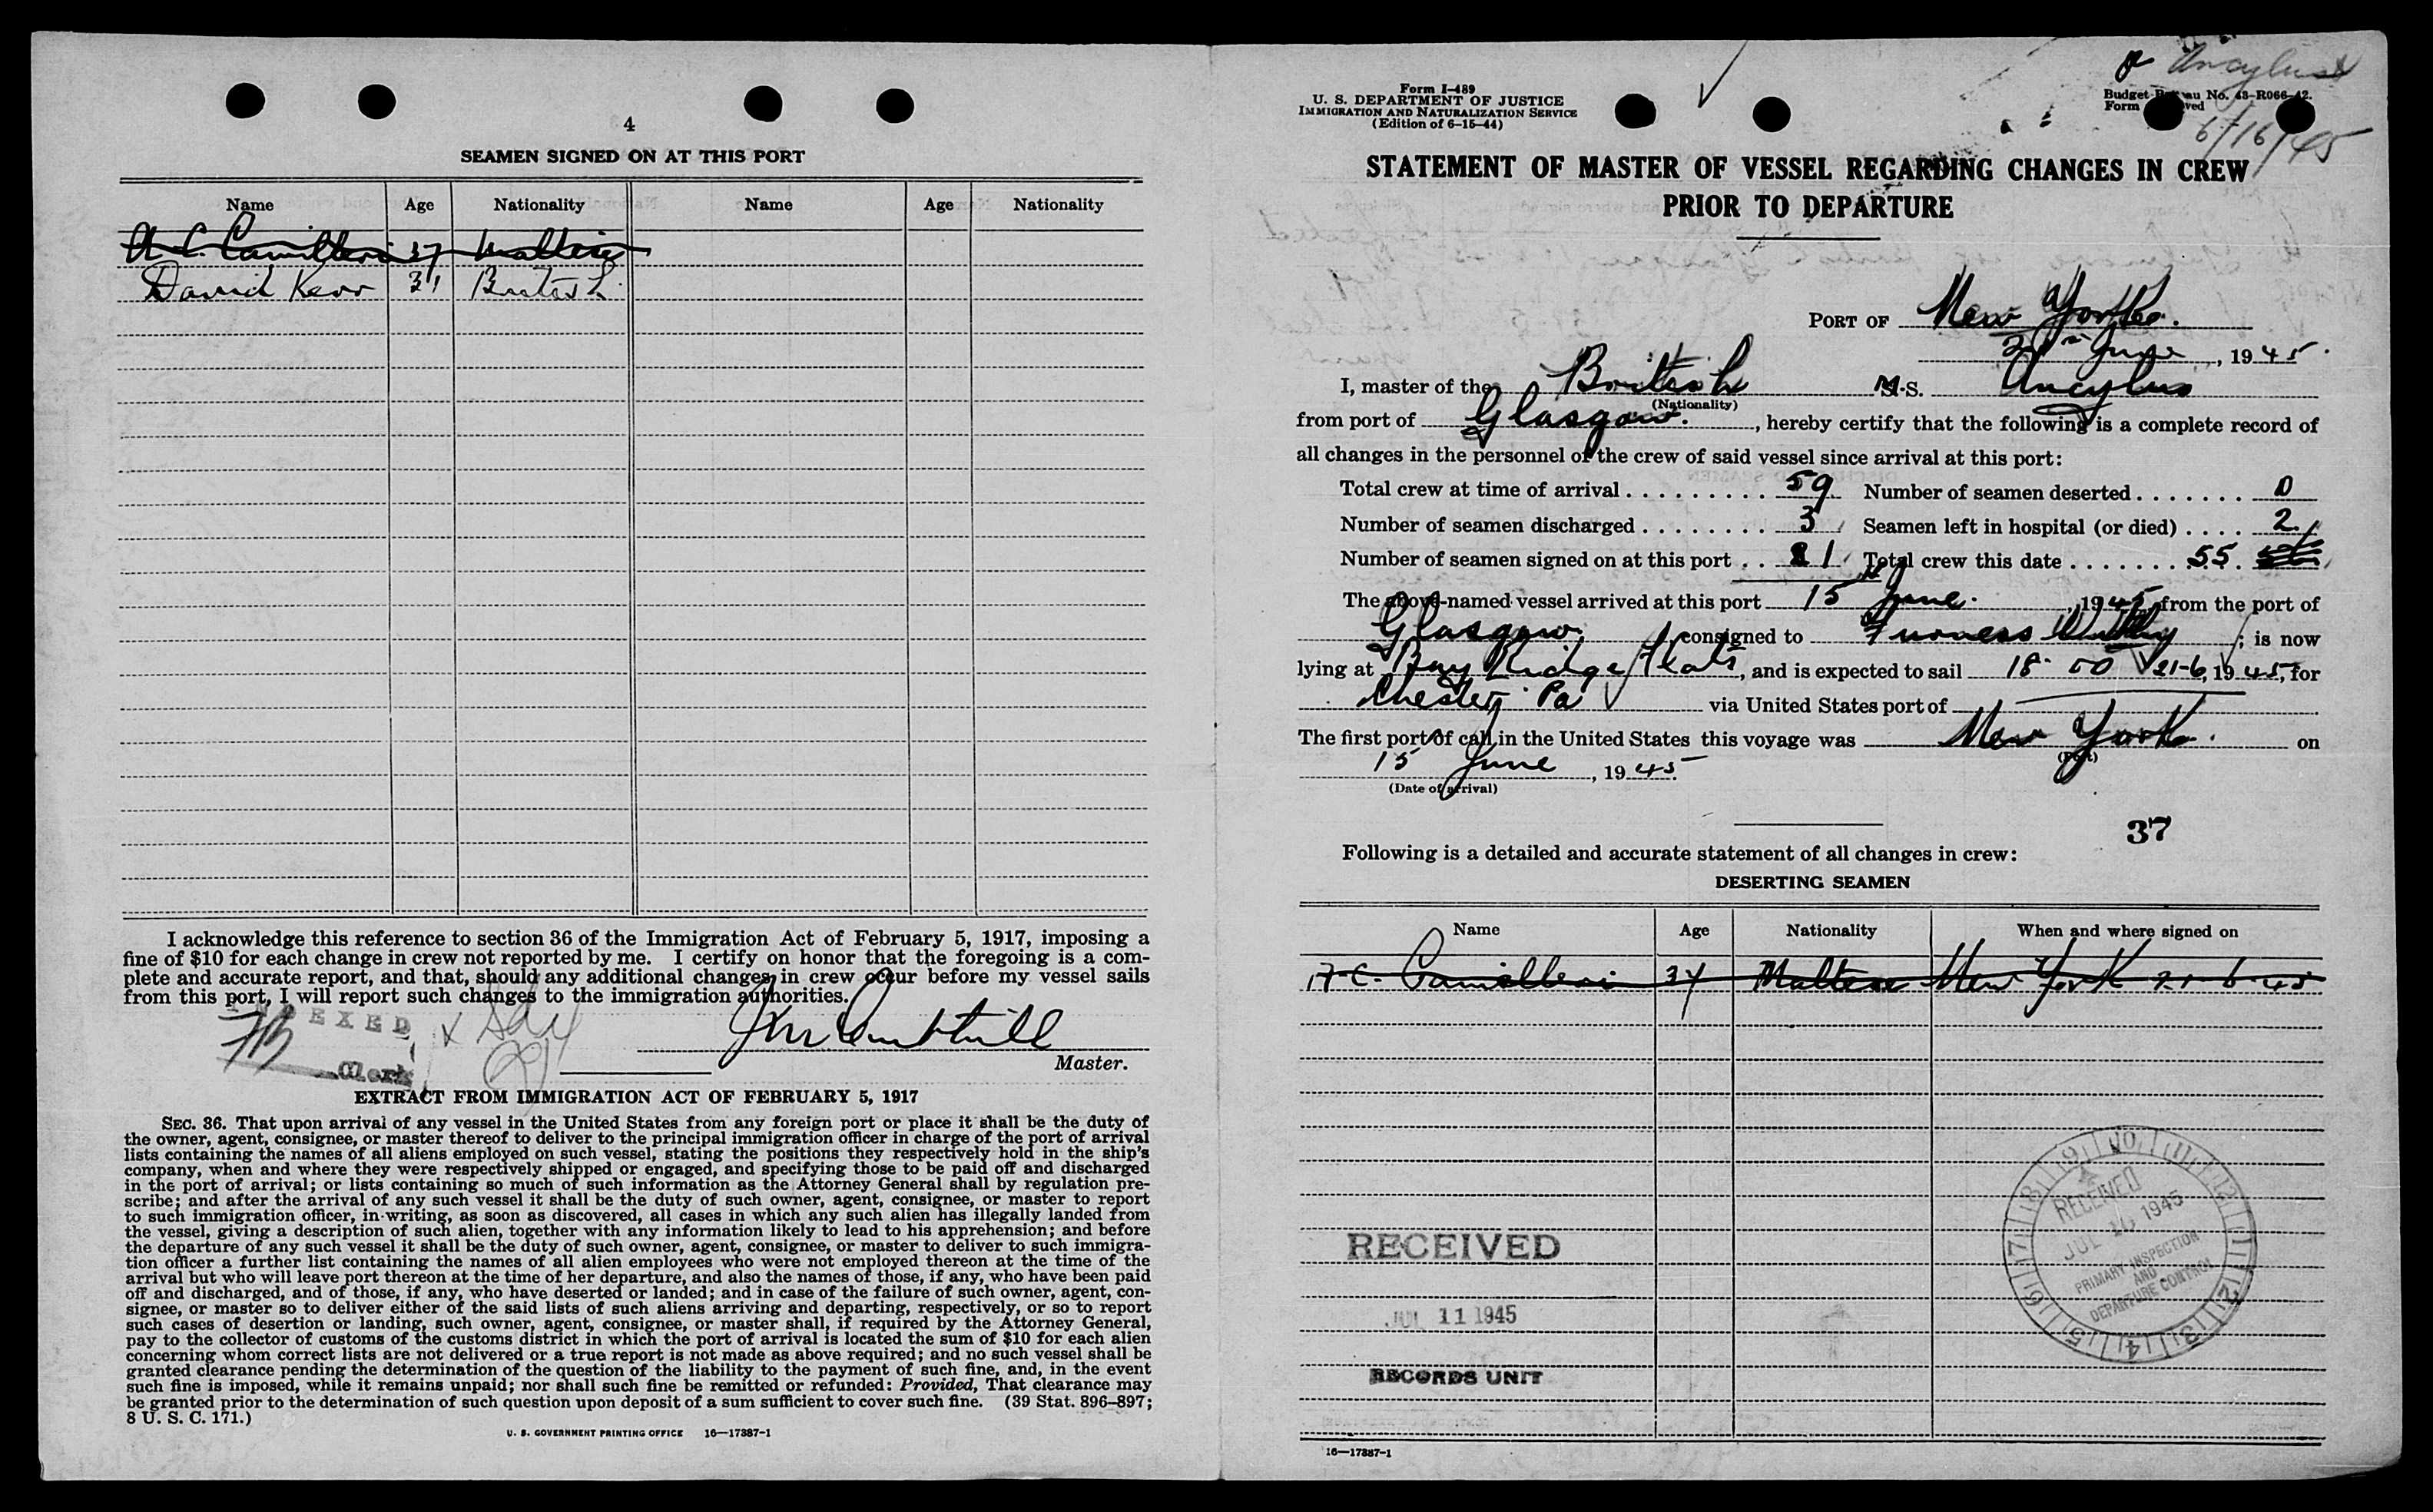 4
SEAMEN SIGNED ON AT THIS PORT
Name Age Nationality Name Age Nationality
A. C. Camilleri 37 Maltese
David Kerr 31 British
I acknowledge this reference to section 36 of the Immigration Act of February 5, 1917, imposing a
fine of $10 for each change in crew not reported by me. I certify on honor that the foregoing is a com-
plete and accurate report, and that, should any additional changes in crew occur before my vessel sails
from this port, I will report such changes to the immigration authorities.
INDEXED
Clerk
Master.
EXTRACT FROM IMMIGRATION ACT OF FEBRUARY 5, 1917
SEC. 36. That upon arrival of any vessel in the United States from any foreign port or place it shall be the duty of
the owner, agent, consignee, or master thereof to deliver to the principal immigration officer in charge of the port of arrival
lists containing the names of all aliens employed on such vessel, stating the positions they respectively hold in the ship's
company, when and where they were respectively shipped or engaged, and specifying those to be paid off and discharged
in the port of arrival; or lists containing so much of such information as the Attorney General shall by regulation pre-
scribe; and after the arrival of any such vessel it shall be the duty of such owner, agent, consignee, or master to report
to such immigration officer, in writing, as soon as discovered, all cases in which any such alien has illegally landed from
the vessel, giving a description of such alien, together with any information likely to lead to his apprehension; and before
the departure of any such vessel it shall be the duty of such owner, agent, consignee, or master to deliver to such immigra-
tion officer a further list containing the names of all alien employees who were not employed thereon at the time of the
arrival but who will leave port thereon at the time of her departure, and also the names of those, if any, who have been paid
off and discharged, and of those, if any, who have deserted or landed; and in case of the failure of such owner, agent, con-
signee, or master so to deliver either of the said lists of such aliens arriving and departing, respectively, or so to report
such cases of desertion or landing, such owner, agent, consignee, or master shall, if required by the Attorney General,
pay to the collector of customs of the customs district in which the port of arrival is located the sum of $10 for each alien
concerning whom correct lists are not delivered or a true report is not made as above required; and no such vessel shall be
granted clearance pending the determination of the question of the liability to the payment of such fine, and, in the event
such fine is imposed, while it remains unpaid; nor shall such fine be remitted or refunded: Provided, That clearance may
be granted prior to the determination of such question upon deposit of a sum sufficient to cover such fine. (39 Stat. 896–897;
8 U. S. C. 171.)
U. S. GOVERNMENT PRINTING OFFICE 16—17387-1
Ancylus
Form I-489
U. S. DEPARTMENT OF JUSTICE
IMMIGRATION AND NATURALIZATION SERVICE
(Edition of 6-15-44)
Budget Bureau No. 43-R066-42.
Form
6/16/45
STATEMENT OF MASTER OF VESSEL REGARDING CHANGES IN CREW
PRIOR TO DEPARTURE
PORT OF New York.
June, 1945.
I, master of the British M.S. Ancylus
(Nationality)
from port of Glasgow., hereby certify that the following is a complete record of
all changes in the personnel of the crew of said vessel since arrival at this port:
Total crew at time of arrival 59 Number of seamen deserted 0
Number of seamen discharged 3 Seamen left in hospital (or died) 2
Number of seamen signed on at this port 1 Total crew this date 55
The above-named vessel arrived at this port 15th June., 1945, from the port of
Glasgow, consigned to Furness Withy; is now
lying at Bay Ridge Flats, and is expected to sail 18.00 21-6, 1945, for
Chester, Pa via United States port of
The first port of call in the United States this voyage was New York. on
(Port)
15 June, 1945.
(Date of arrival)
37
Following is a detailed and accurate statement of all changes in crew:
DESERTING SEAMEN
Name Age Nationality When and where signed on
A. C. Camilleri 37 Maltese New York 21-6-45
RECEIVED
JUL 11 1945
RECORDS UNIT
RECEIVED
JUL 1945
PRIMARY INSPECTION
AND
DEPARTURE CONTROL
16—17387-1